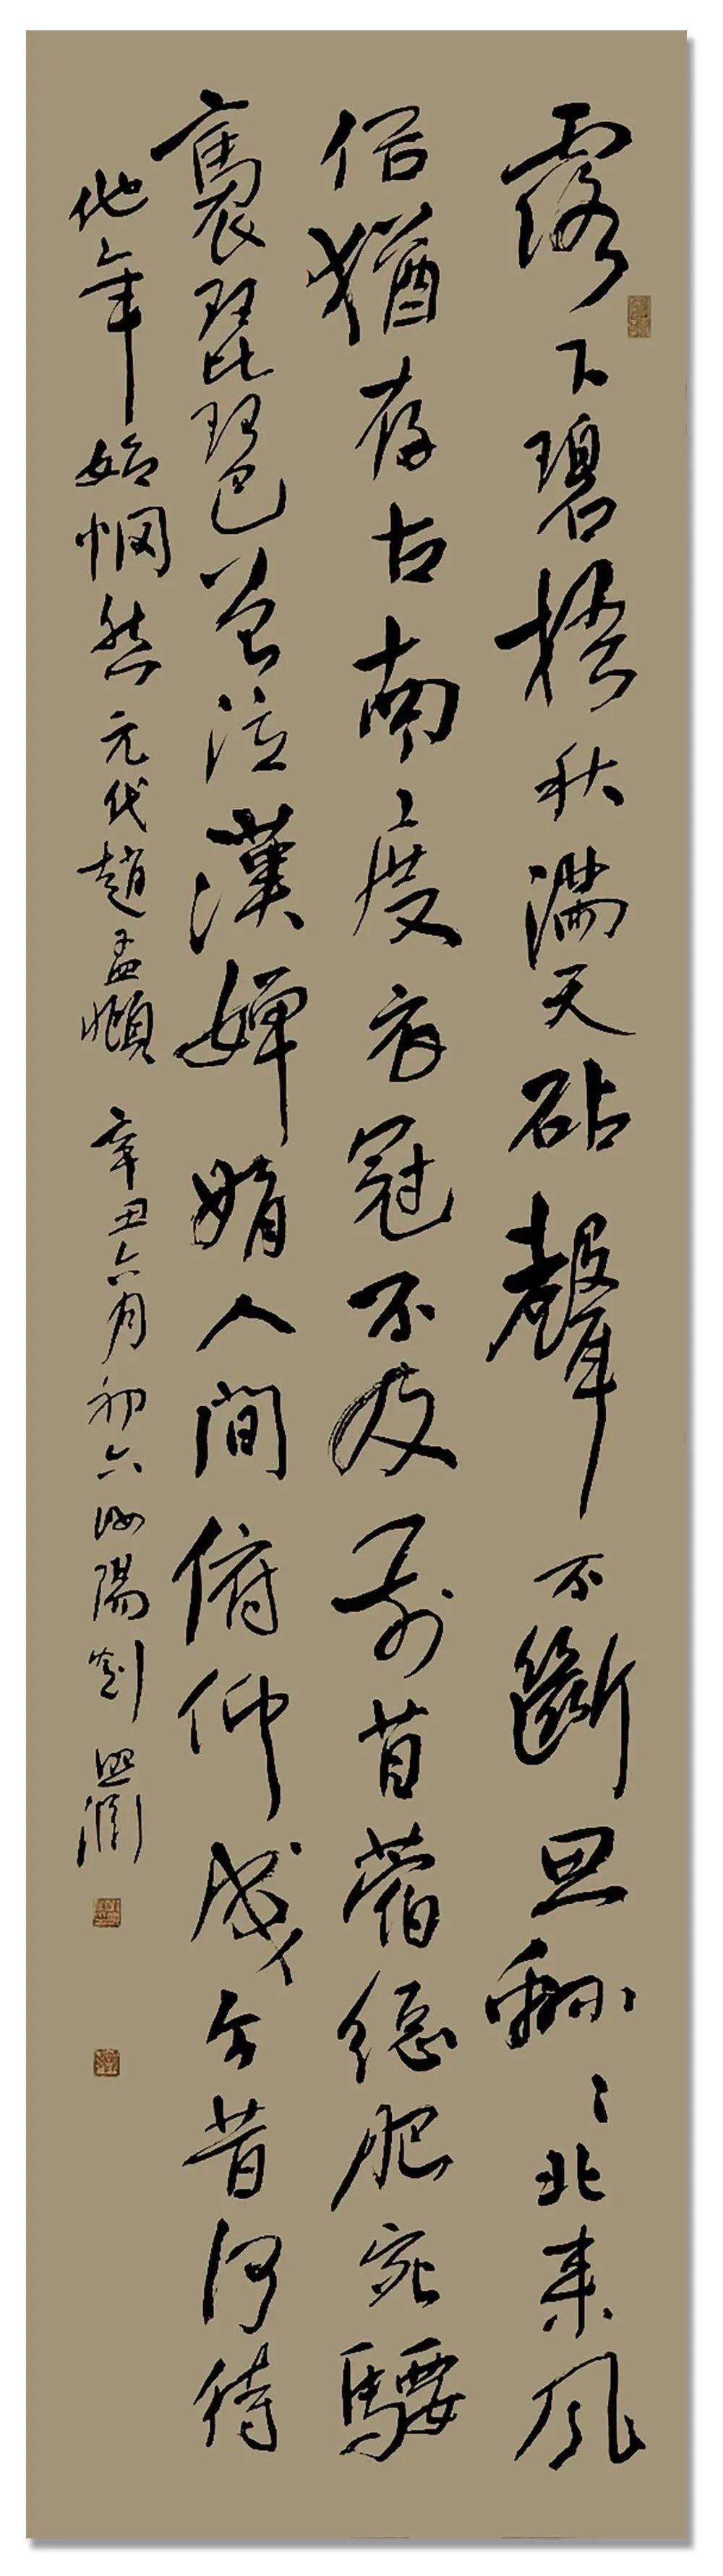 露下碧梧秋滿天砧聲不斷思綿〻北來風
俗猶存古南度衣冠不及前苜蓿總肥宛騕
褭琵琶曾泣漢嬋娟人間俯仰成今昔何待
他年始惘然 元代趙孟頫 辛丑六月初六汝陽劉